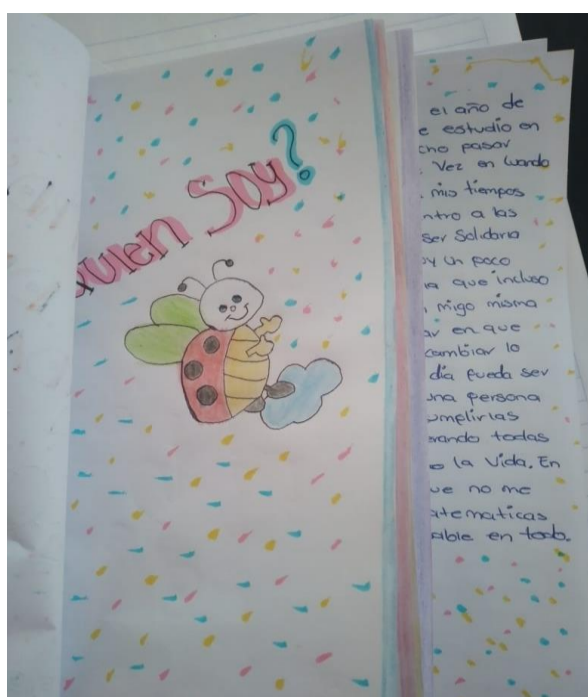 Quien Soy?
el año de
e estudio en
cho pasar
Vez en
mis tiempos
ntro a las
ser Solidaria
y un poco
a que incluso
migo misma
ar en que
cambiar lo
día pueda ser
una persona
umplirlas
rando todas
la Vida. En
ue no me
atematicas
able en todo.